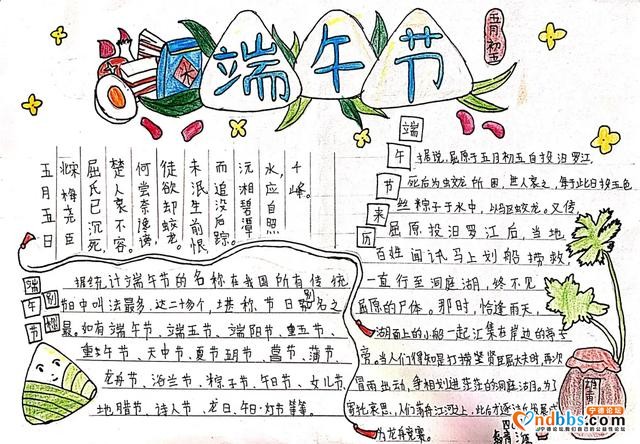 端午节
五月初五
五月五日
北宋 梅尧臣
屈氏已沉死,
楚人哀不容。
何尝奈谗谤,
徒欲却蛟龙。
未泯生前恨,
而追没后踪。
沅湘碧潭
水,应自照
千峰。
端午节来历
据说,屈原于五月初五自投汨罗江,
死后为蛟龙所困,世人哀之,每于此日投五色
丝粽子于水中,以驱蛟龙。又传
屈原投汨罗江后,当地
百姓闻讯马上划船捞救
一直行至洞庭湖,终不见
屈原的尸体。那时,恰逢雨天,
湖面上的小船一起汇集在岸边的亭子
旁。当人们得知是打捞贤臣屈大夫时,再次
冒雨出动,争相划进茫茫的洞庭湖。为了
寄托哀思,人们荡舟江河上,此后才逐渐发展成
为龙舟竞赛。
端午节别称
据统计端午节的名称在我国所有传统
节日中叫法最多,达二十多个,堪称节日别名之
最。如有端午节、端五节、端阳节、重五节、
重午节、天中节、夏节
菖节、蒲节、
龙舟节、浴兰节、粽子节、午日节、女儿节、
地腊节、诗人节、龙日、午日、灯节等等。
雄黄
宁德论坛
ndbbs.com